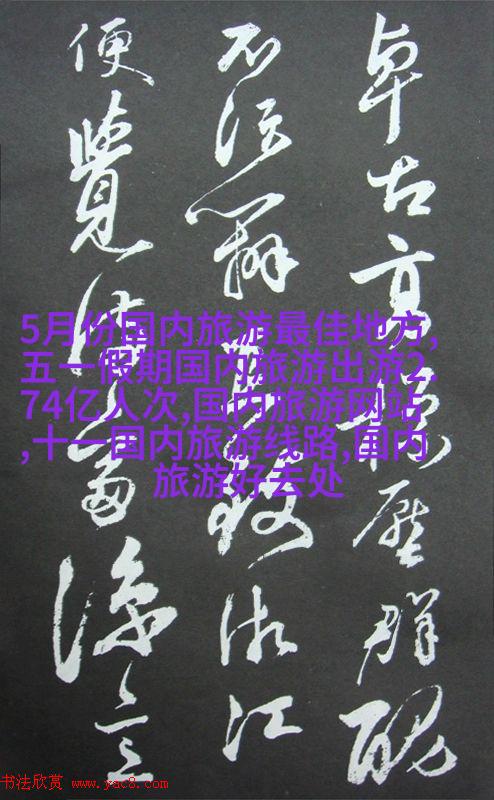 卓古高標壓群醜
不信辭江
便覺涼意
5月份国内旅游最佳地方,
五一假期国内旅游出游2.
74亿人次,国内旅游网站
,十一国内旅游线路,国内
旅游好去处
书法欣赏 www.yac8.com